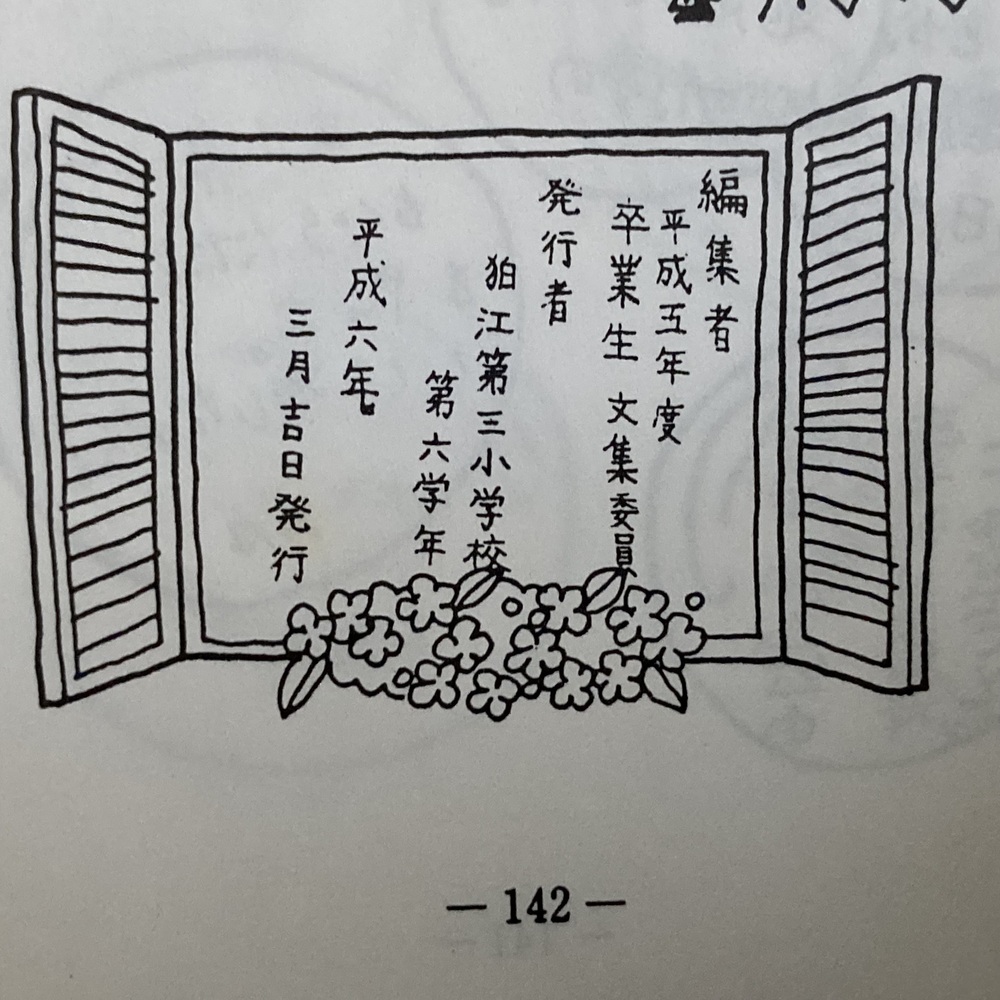 編集者
平成五年度
卒業生 文集委員
発行者
狛江第三小学校
第六学年
平成六年
三月吉日発行
— 142 —